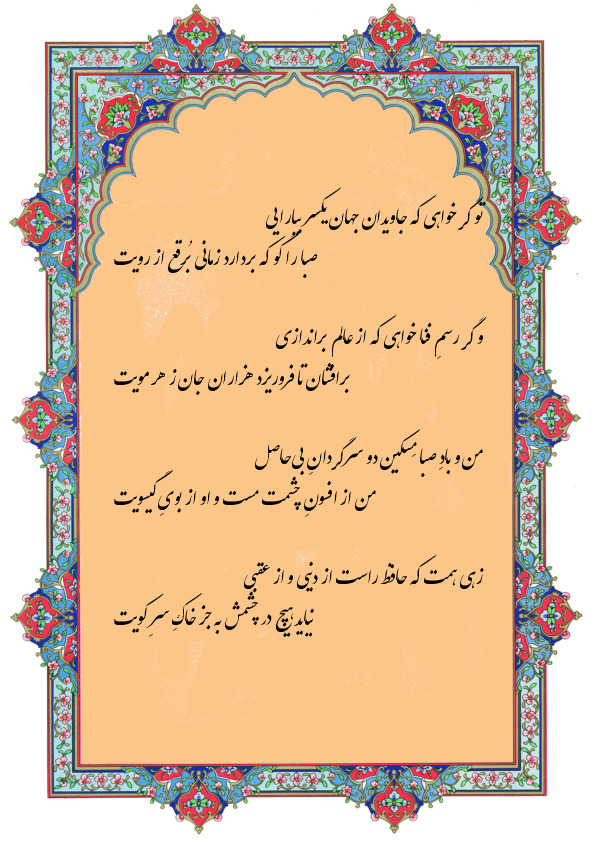 تو گر خواهی که جاویدان جهان یکسر بیارایی
صبا را گو که بردارد زمانی بُرقع از رویت
و گر رسمِ فنا خواهی که از عالم براندازی
برافشان تا فروریزد هزاران جان ز هر مویت
من و بادِ صبا مِسکین دو سرگردانِ بی‌حاصل
من از افسونِ چشمت مست و او از بویِ گیسویت
زهی همت که حافظ راست از دینی و از عقبی
نیاید هیچ در چشمش به جز خاکِ سرِ کویت